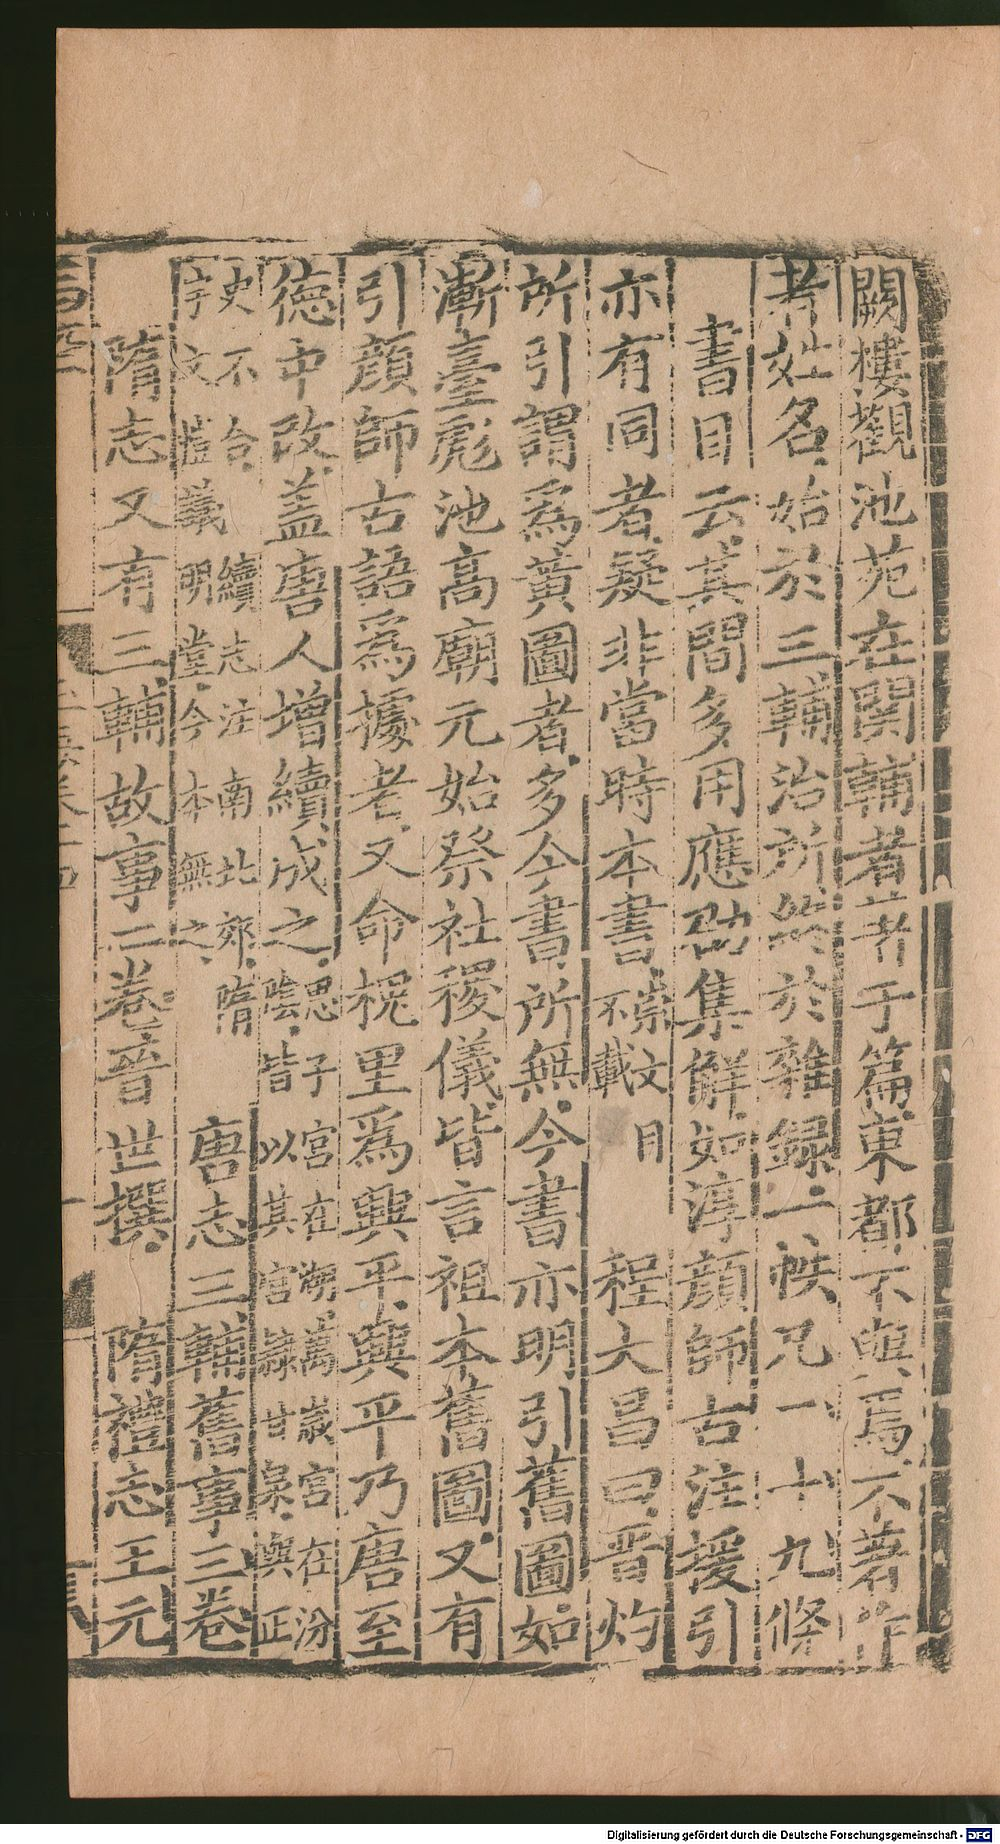 闕樓觀池苑在關輔者著于篇東都不與焉不著作
者姓名始於三輔治所終於雜錄二帙凡一十九條
書目云其間多用應劭集解如淳顏師古注援引
亦有同者疑非當時本書崇文目不載程大昌曰晉灼
所引謂爲黃圖者多今書所無今書亦明引舊圖如
漸臺彪池高廟元始祭社稷儀皆言祖本舊圖又有
引顏師古語爲據者又命槐里爲興平興平乃唐至
德中改蓋唐人增續成之思子宮在湖萬歲宮在汾陰皆以其宮隸甘泉與正
史不合續志注南北郊隋宇文愷議明堂今本無之唐志三輔舊事三卷
隋志又有三輔故事二卷晉世撰隋禮志王元
Digitalisierung gefördert durch die Deutsche Forschungsgemeinschaft - DFG